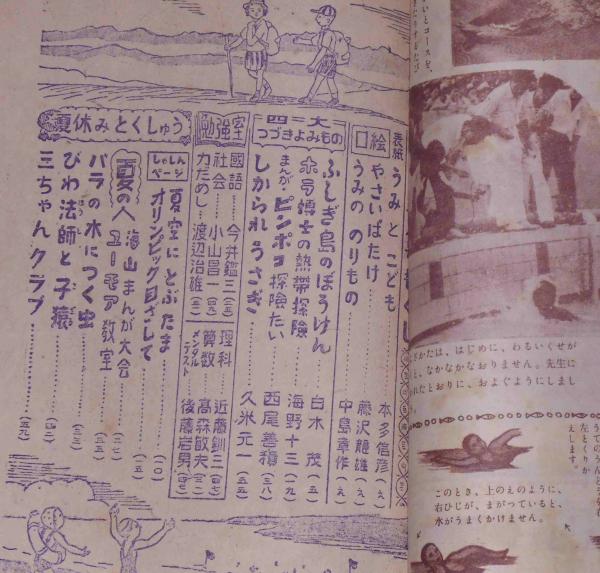 表紙 うみと こども………本多信彦(え)
口絵 やさいばたけ………藤沢龍雄(え)
うみの のりもの………中島章作(え)
四=大
つづきよみもの
ふしぎ島のぼうけん………白木 茂(五)
ホラ博士の熱帯探険………海野十三(一九)
まんが ピンポコ探険たい………西尾善積(三八)
しかられうさぎ………久米元一(五五)
勉強室
國語………今井鑑三
社会………小山昌一
力だめし…渡辺治雄
理科………近藤釧三
算数………高森敏夫
メンタルテスト 後藤岩男
夏休みとくしゅう
しゃしんページ
夏空にとぶ たま
オリンピック目ざして………(一〇)
夏の人 海山まんが大会
ユーモア教室
バラの木につく虫
びわ法師と子猿
三ちゃんクラブ
いとコースを、
ざかたは、はじめに、わるいくせが
と、なかなかなおりません。先生に
れたとおりに、およぐようにしまし
左とくりか
えします。
このとき、上のえのように、
右ひじが、まがっていると、
水がうまくかけません。